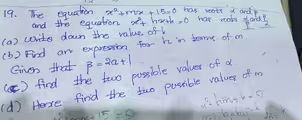 19. The equation x²+mx+15=0 has roots α and β
and the equation x²+hx+k=0 has roots α/β and β/α
(a) Write down the value of k
(b) Find an expression for h in terms of m
Given that β=2α+1
(c) find the two possible values of α
(d) Hence find the two possible values of m